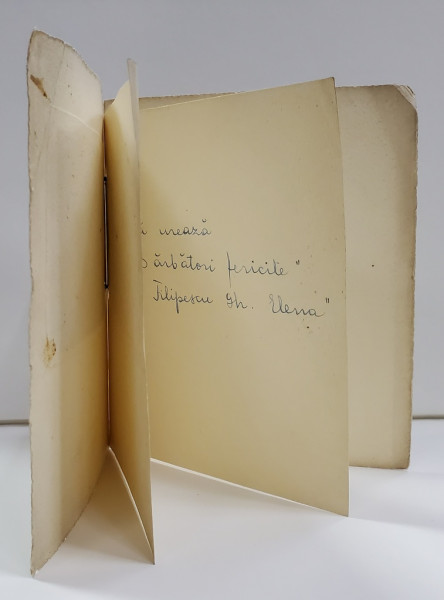 urează
ărbători fericite"
Filipescu Gh. Elena"